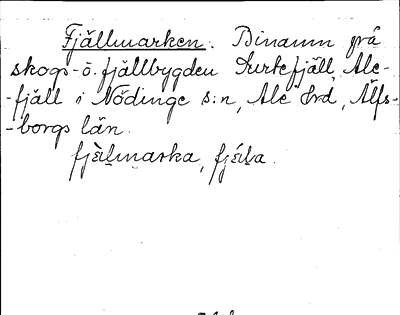 Fjällmarken. Binamn på
skogs- o. fjällbygden Surtefjäll, Ale-
-fjäll i Nödinge s:n, Ale Hrd, Älfs-
-borgs län.
fjälmarka, fjäla.